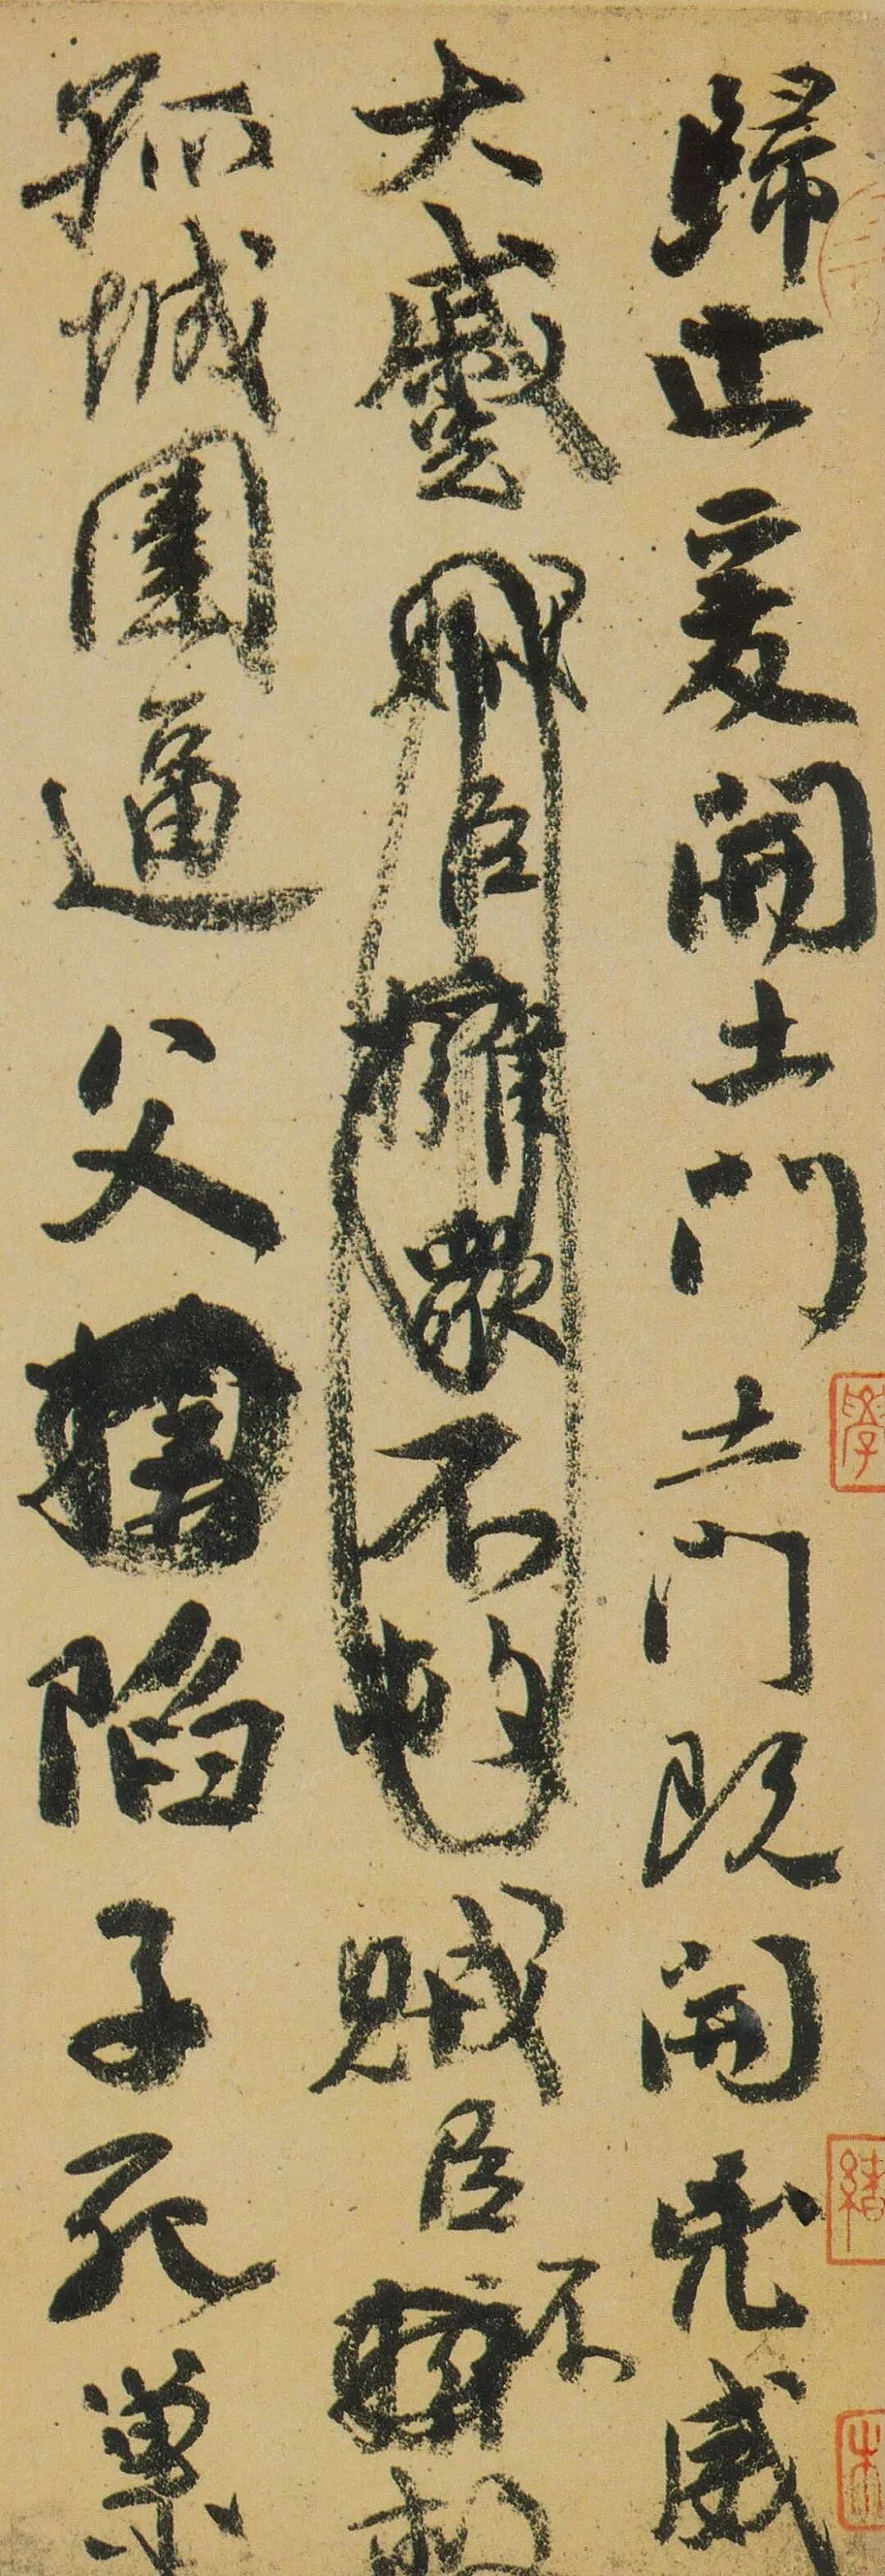 歸止爰開土門土門既開兇威
大蹙賊臣擁衆不救賊臣不救
孤城圍逼父陷子死巢